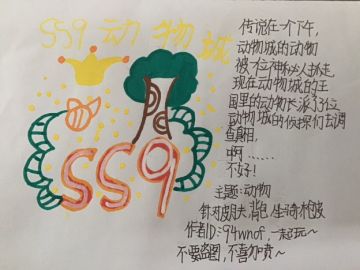 SS9 动物城
SS9
传说在一个下午，
动物城的动物
被一位神秘人抓走，
现在动物城的王
国里的动物长派了3位
动物城的侦探们去调
查真相，
啊……
不好！
主题：动物
针对皮肤，背包，坐骑，枪皮
作者ID：94wnof，一起玩~
不要盗图，不喜勿喷~